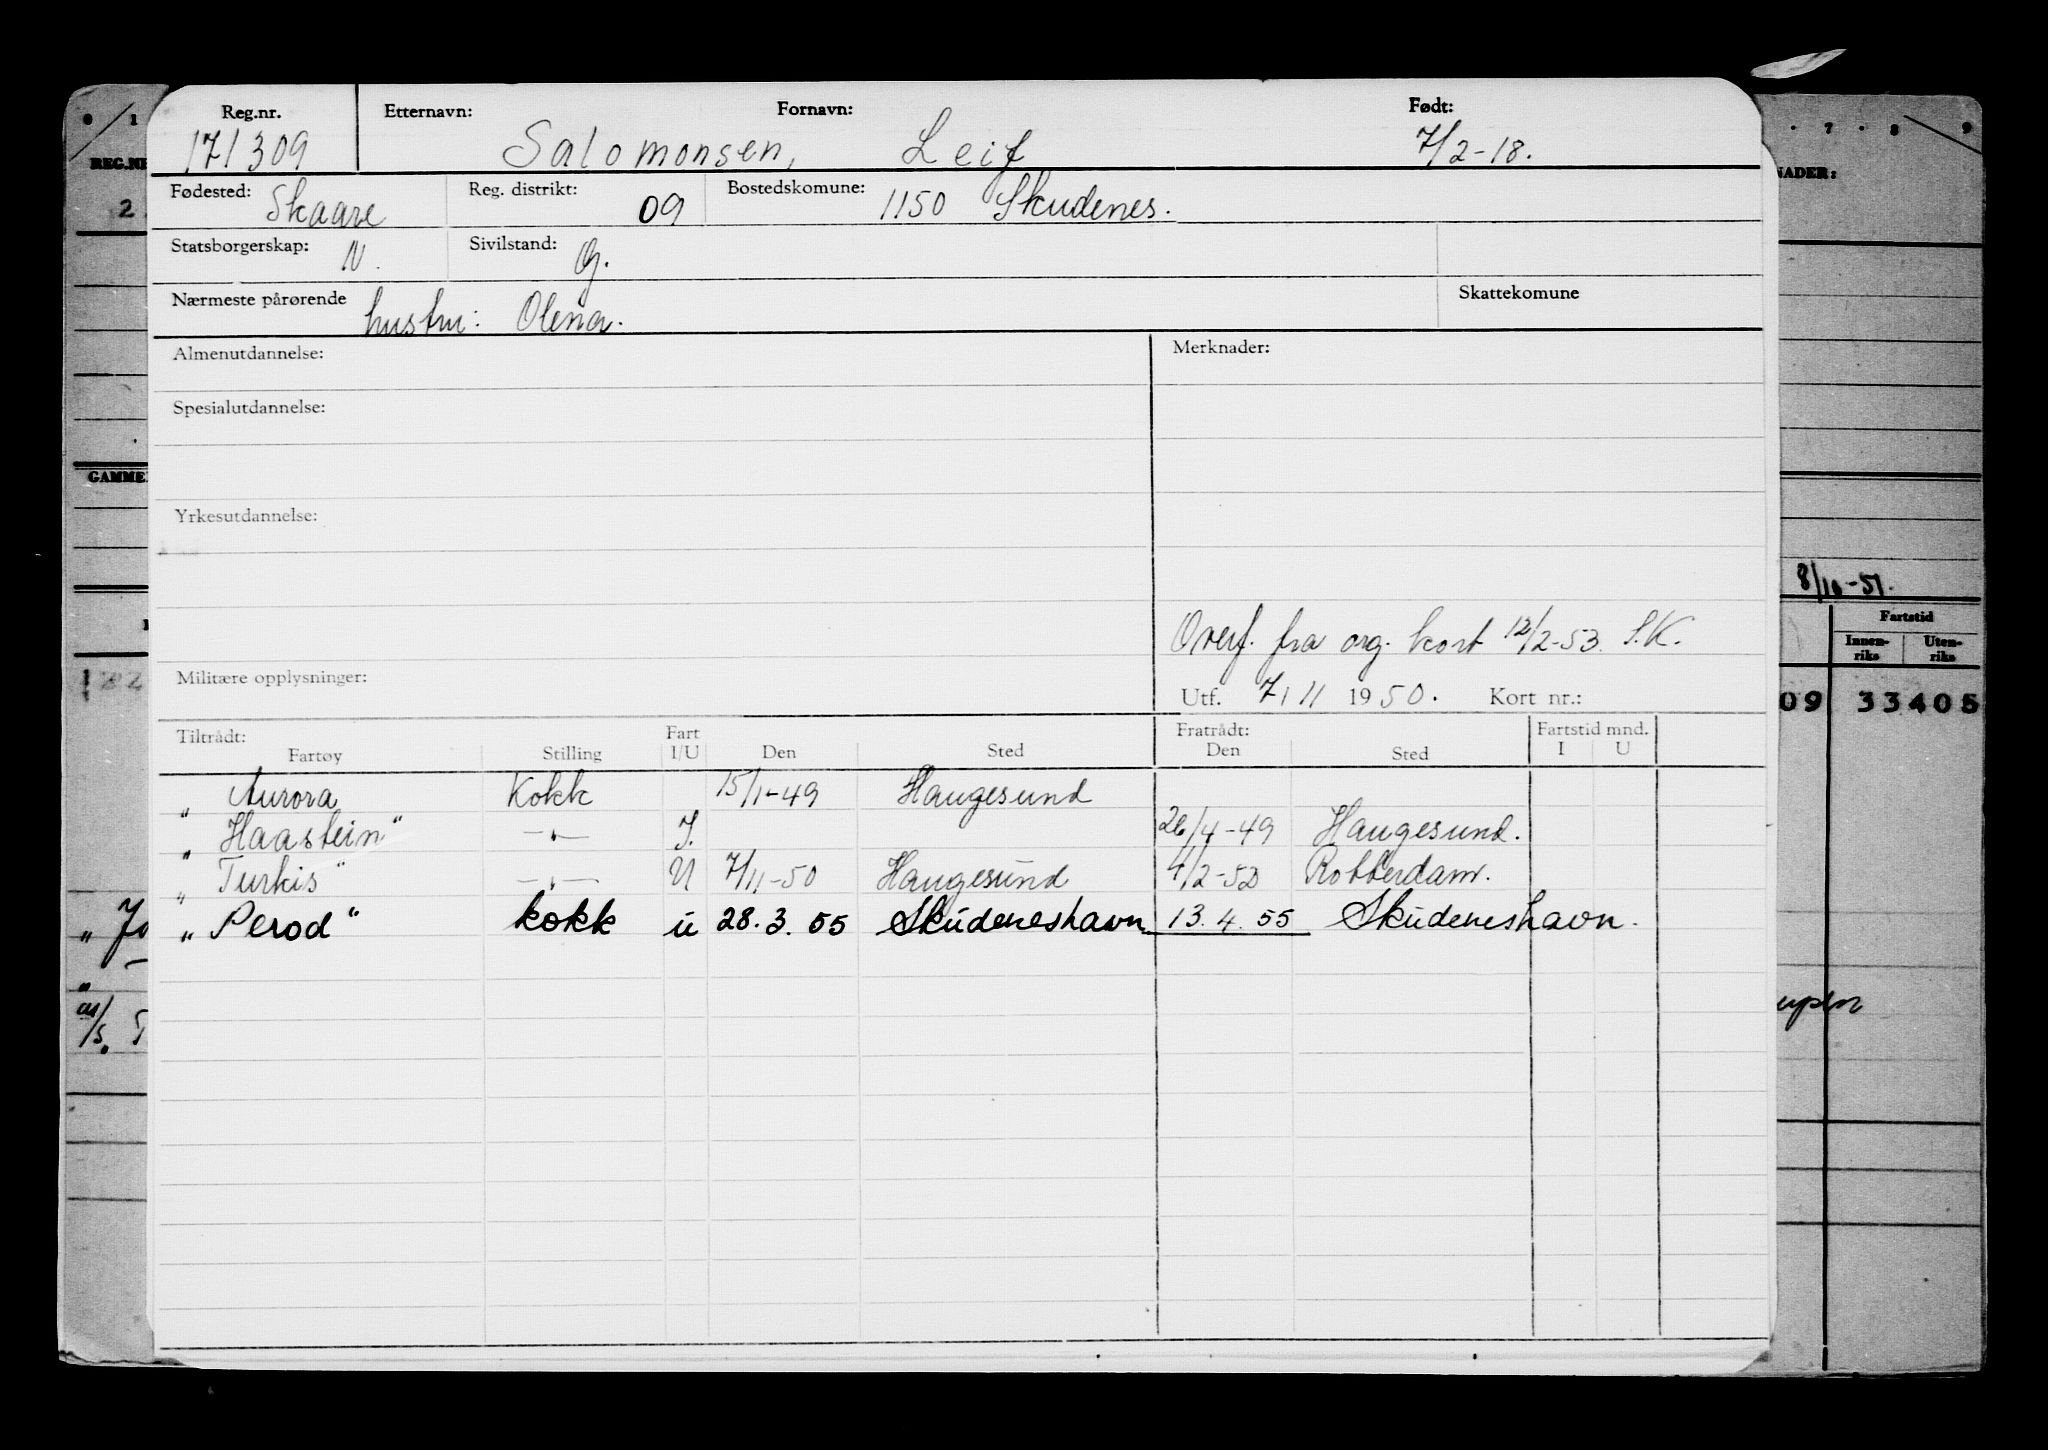 Reg.nr. Etternavn: Fornavn: Født:
171309 Salomonsen, Leif 7/2-18.
Fødested: Skaare Reg. distrikt: 09 Bostedskomune: 1150 Skudenes.
Statsborgerskap: N. Sivilstand: G.
Nærmeste pårørende hustru: Olena. Skattekomune
Almenutdannelse: Merknader:
Spesialutdannelse:
Yrkesutdannelse:
Overf. fra org. kort 12/2-53. S.K.
Militære opplysninger: Utf. 7/11 1950. Kort nr.:
Tiltrådt: Fart Fratrådt: Fartstid mnd.
Fartøy Stilling I/U Den Sted Den Sted I U
" Aurora Kokk 15/1-49 Haugesund
" Haastein" —"— I. 26/4-49 Haugesund.
" Turkis" —"— U 7/11-50 Haugesund Rotterdam.
" Perod" kokk u 28.3.55 Skudeneshavn 13.4.55 Skudeneshavn.
0 1
REG.NR
2
GAMME
7 8 9
NADER:
8/10-51.
Fartstid
Innen-riks Uten-riks
09 33405